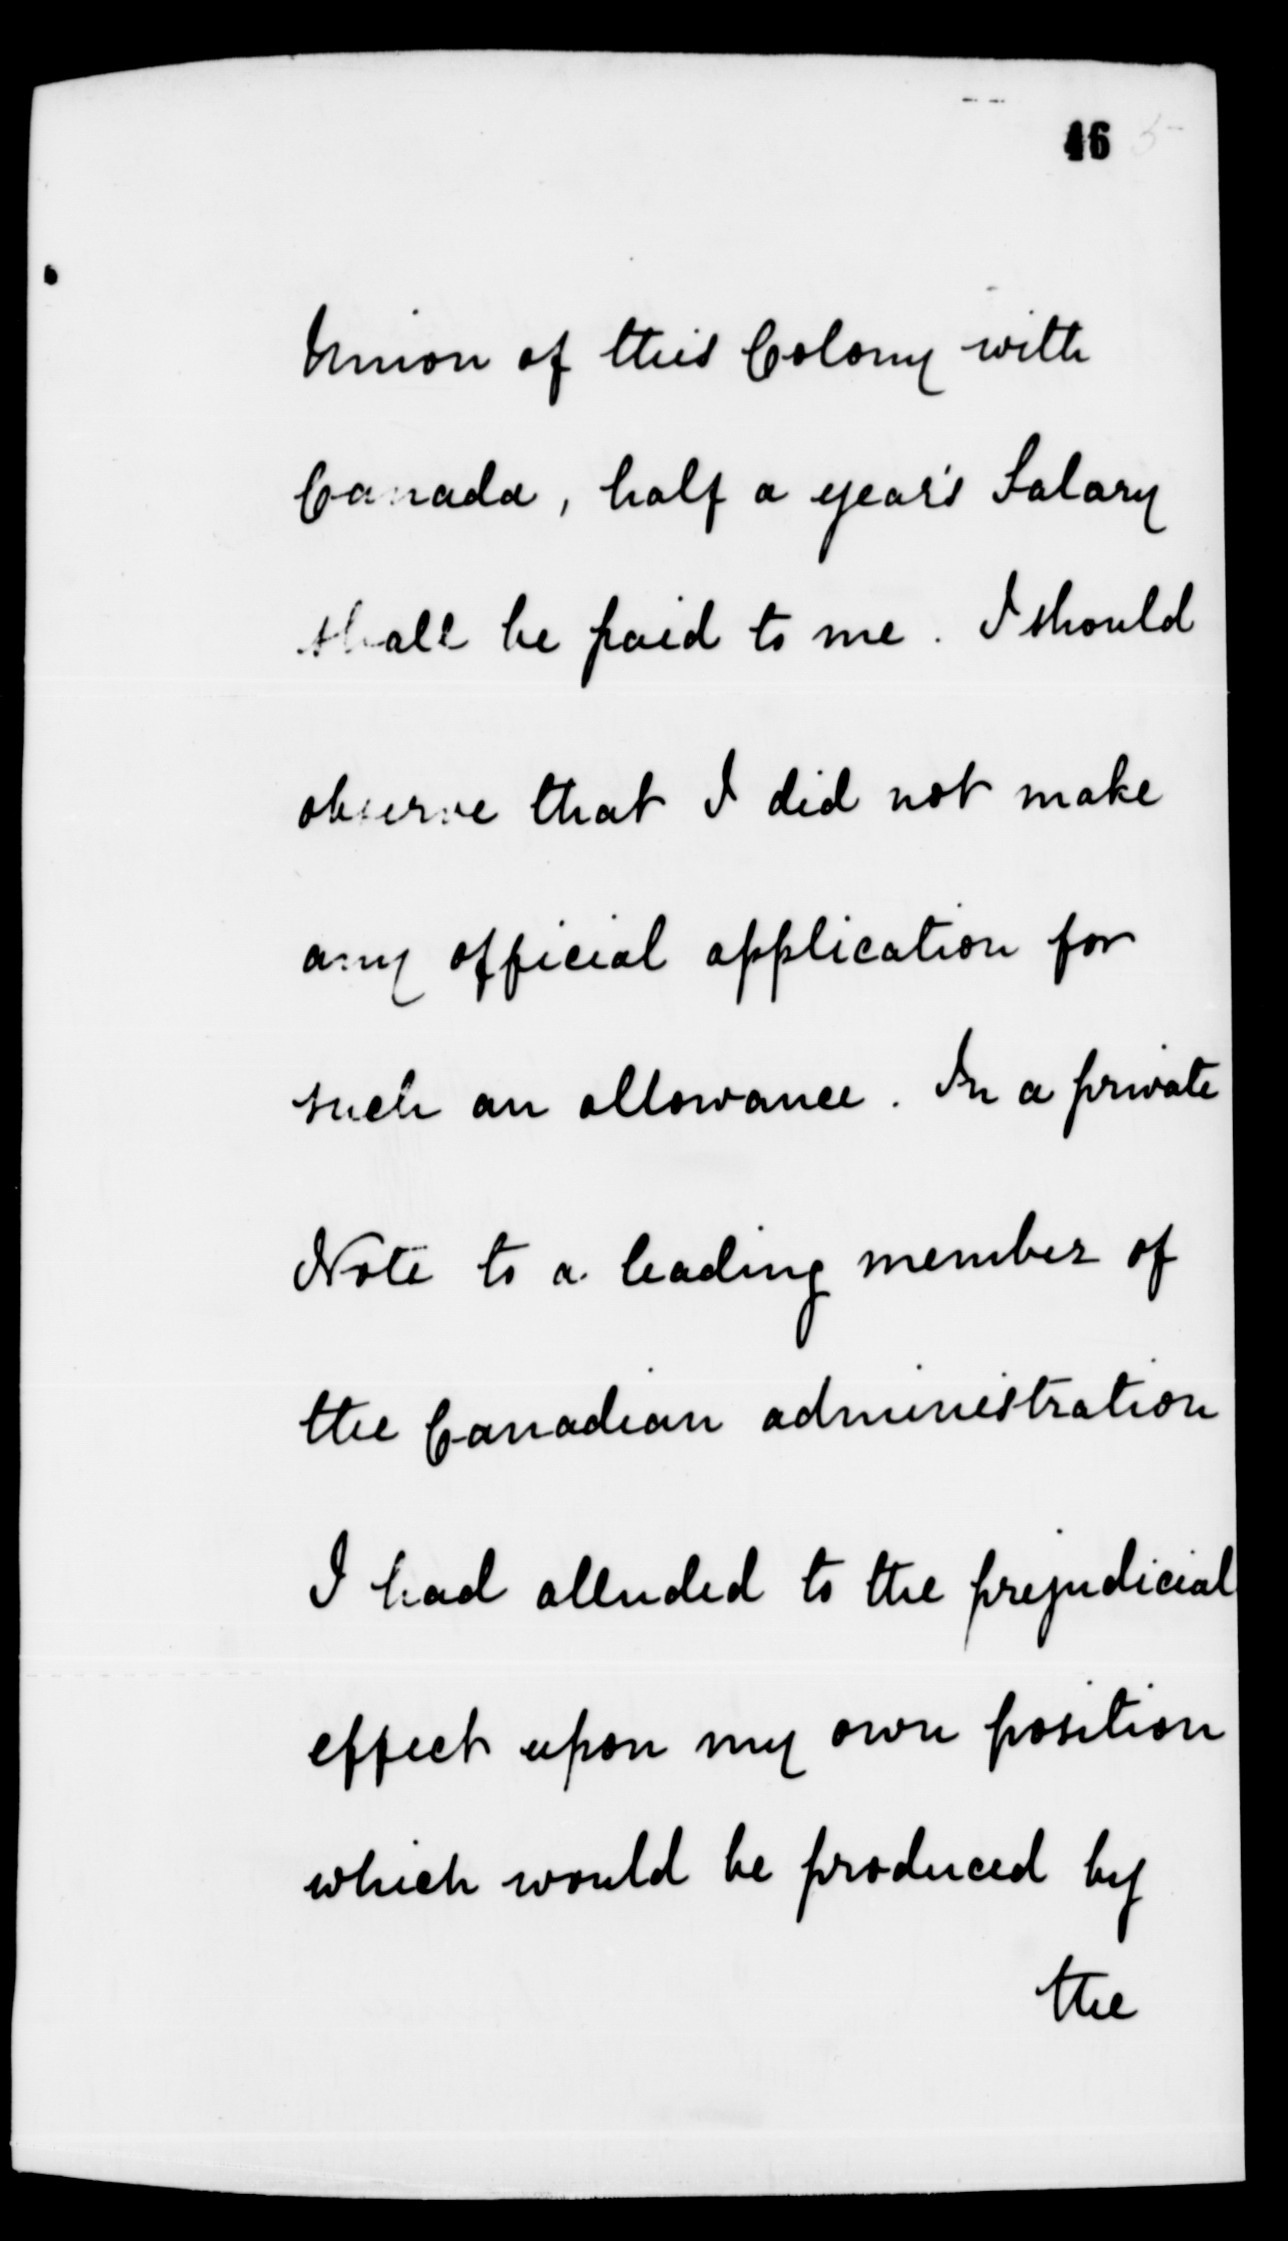 46 5
Union of this Colony with
Canada, half a year's Salary
shall be paid to me. I should
observe that I did not make
any official application for
such an allowance. In a private
Note to a leading member of
the Canadian administration
I had alluded to the prejudicial
effect upon my own position
which would be produced by
the